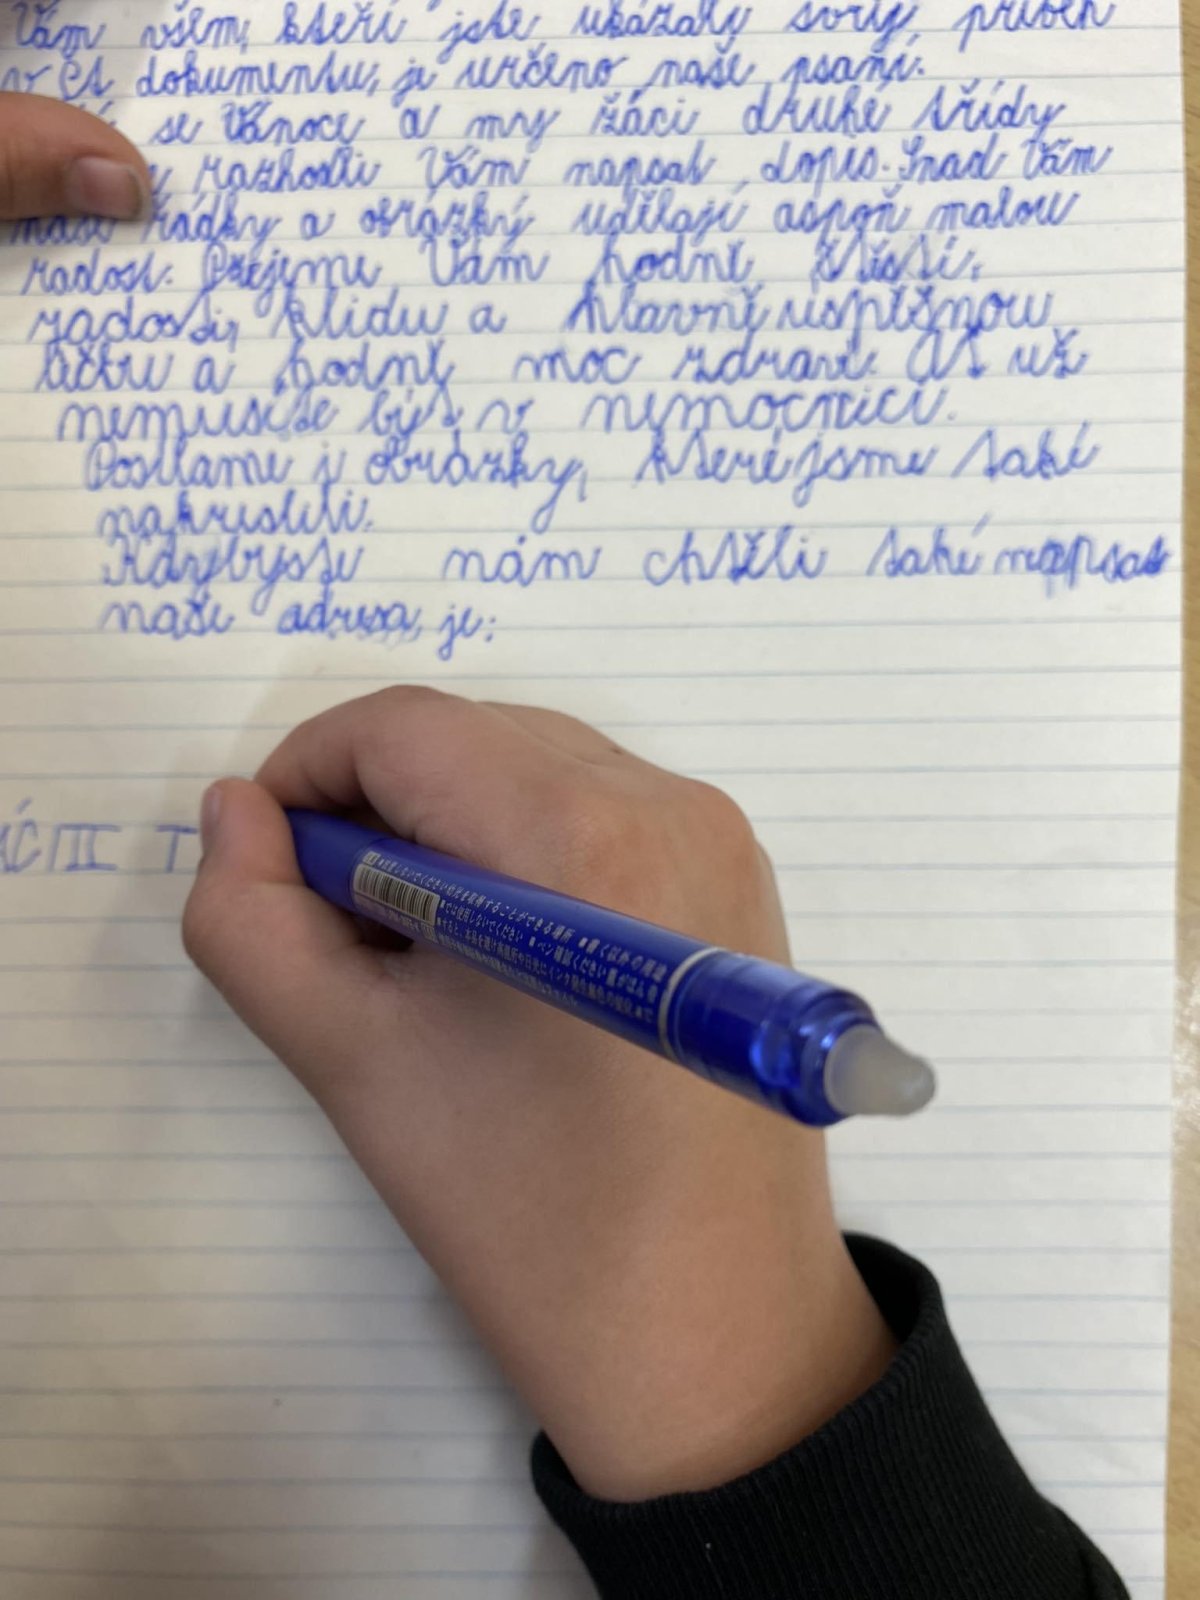 Vám všem, kteří jste ukázaly svůj příběh
v ČT dokumentu, je určeno naše psaní.
se Vánoce a my žáci druhé třídy
rozhodli Vám napsat dopis. Snad Vám
naše řádky a obrázky udělají aspoň malou
radost. Přejeme Vám hodně štěstí,
radosti, klidu a hlavně uspěšnou
léčbu a hodně moc zdraví. Ať už
nemusíte být v nemocnici.
Posíláme i obrázky, které jsme také
nakreslili.
Kdybyste nám chtěli také napsat
naše adresa je:
ÁČI II T